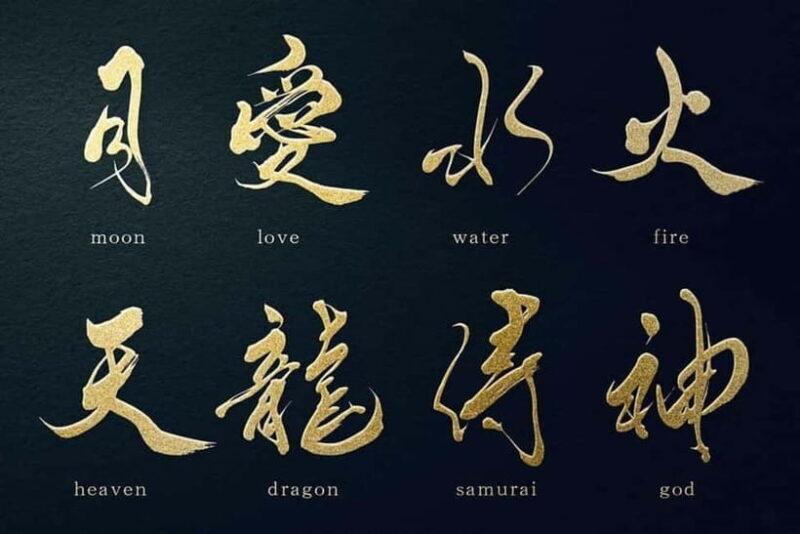 月 愛 水 火
moon love water fire
天 龍 侍 神
heaven dragon samurai god